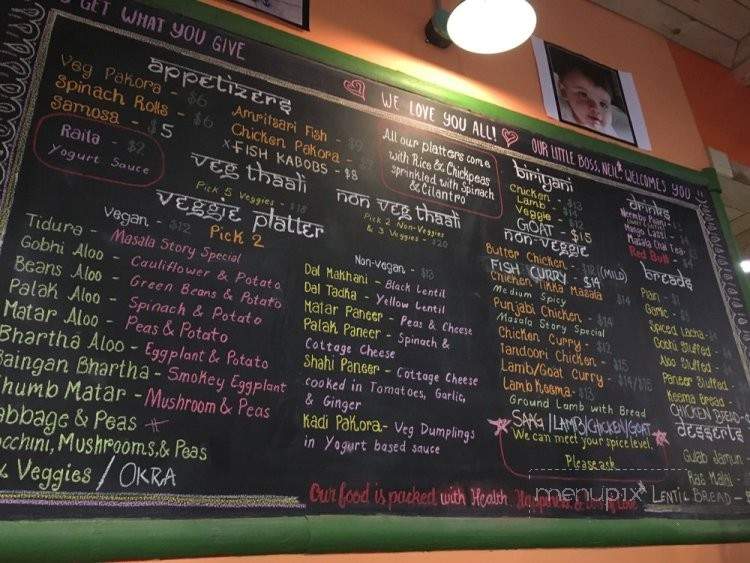 GET WHAT YOU GIVE
WE LOVE YOU ALL!
OUR LITTLE BOSS, NEIL! WELCOMES YOU
APPETIZERS
Veg Pakora - $6
Spinach Rolls - $6
Samosa - $5
Raita - $2
Yogurt Sauce
Amritsari Fish - $9
Chicken Pakora -
FISH KABOBS - $8
All our platters come
with Rice & Chickpeas
sprinkled with Spinach
& Cilantro
VEG THALI
Pick 5 Veggies - $18
NON VEG THALI
Pick 2 Non-Veggies
& 3 Veggies - $20
VEGGIE PLATTER
Vegan - $12 Pick 2
Tidura - Masala Story Special
Gobhi Aloo - Cauliflower & Potato
Beans Aloo - Green Beans & Potato
Palak Aloo - Spinach & Potato
Matar Aloo - Peas & Potato
Bhartha Aloo - Eggplant & Potato
Baingan Bhartha - Smokey Eggplant
Khumb Matar - Mushroom & Peas
Cabbage & Peas
Zucchini, Mushrooms, & Peas
Veggies / OKRA
Non-vegan - $13
Dal Makhani - Black Lentil
Dal Tadka - Yellow Lentil
Matar Paneer - Peas & Cheese
Palak Paneer - Spinach &
Cottage Cheese
Shahi Paneer - Cottage Cheese
cooked in Tomatoes, Garlic,
& Ginger
Kadi Pakora - Veg Dumplings
in Yogurt based sauce
BIRIYANI
Chicken - $13
Lamb - $14
Veggie - $12
GOAT - $15
NON-VEGGIE
Butter Chicken - $12 (MILD)
FISH CURRY - $14
Chicken Tikka Masala $14
Medium Spicy
Punjabi Chicken - $14
Masala Story Special
Chicken Curry - $12
Tandoori Chicken - $15
Lamb/Goat Curry - $14/$15
Lamb Keema - $13
Ground Lamb with Bread
SAAG/LAMB/CHICKEN/GOAT
We can meet your spice level.
Please ask
DRINKS
Nimbu Pani
Mango Lassi
Masala Chai Tea
Red Bull
BREADS
Plain -
Garlic -
Spiced Lacha -
Gobhi Stuffed -
Aloo Stuffed -
Paneer Stuffed -
Keema Bread -
CHICKEN BREAD -
DESSERTS
Gulab Jamun
Ras Malai
LENTIL BREAD -
Our food is packed with Health, Happiness, & Love
menupix